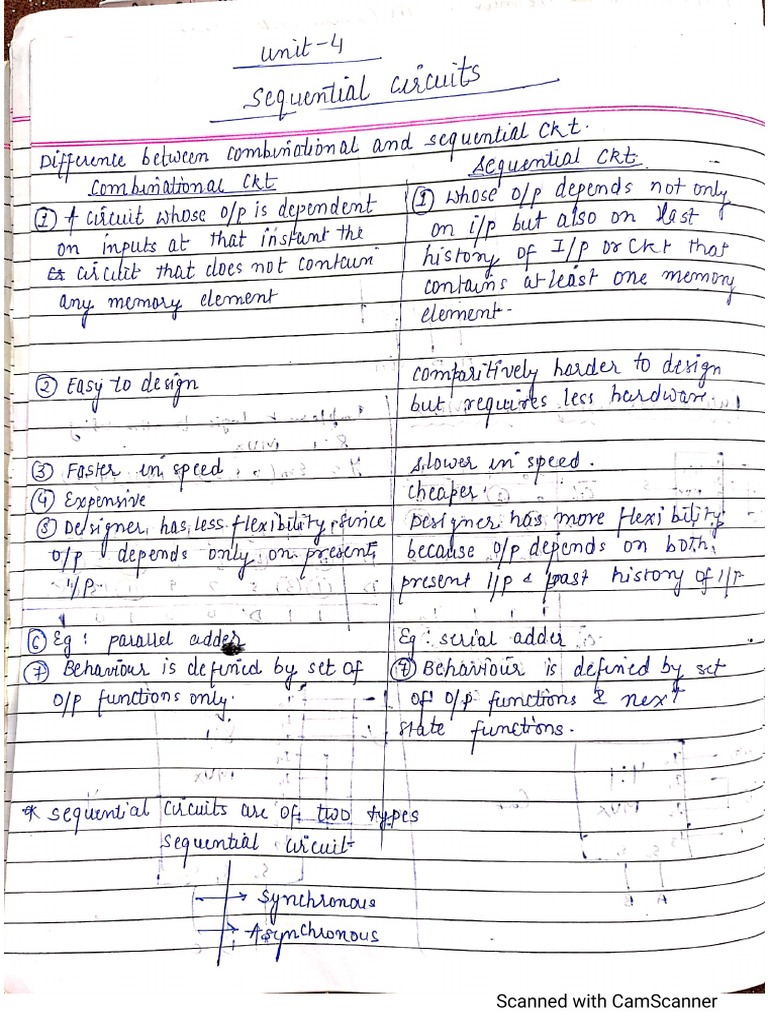 Unit-4
Sequential Circuits
Difference between combinational and sequential Ckt.
Combinational Ckt
① A circuit whose o/p is dependent
on inputs at that instant the
circuit that does not contain
any memory element
② Easy to design
③ Faster in speed
④ Expensive
⑤ Designer has less flexibility since
o/p depends only on present
i/p.
⑥ Eg: parallel adder
⑦ Behaviour is defined by set of
o/p functions only.
Sequential Ckt
① Whose o/p depends not only
on i/p but also on
history of I/p or Ckt that
contains atleast one memory
element.
comparitively harder to design
but requires less hardware.
slower in speed.
cheaper
Designer has more flexibility
because o/p depends on both
present I/p & past history of I/p
Eg: serial adder
Behaviour is defined by set
of o/p functions & next
state functions.
* sequential circuits are of two types
sequential circuit
→ Synchronous
→ Asynchronous
Scanned with CamScanner